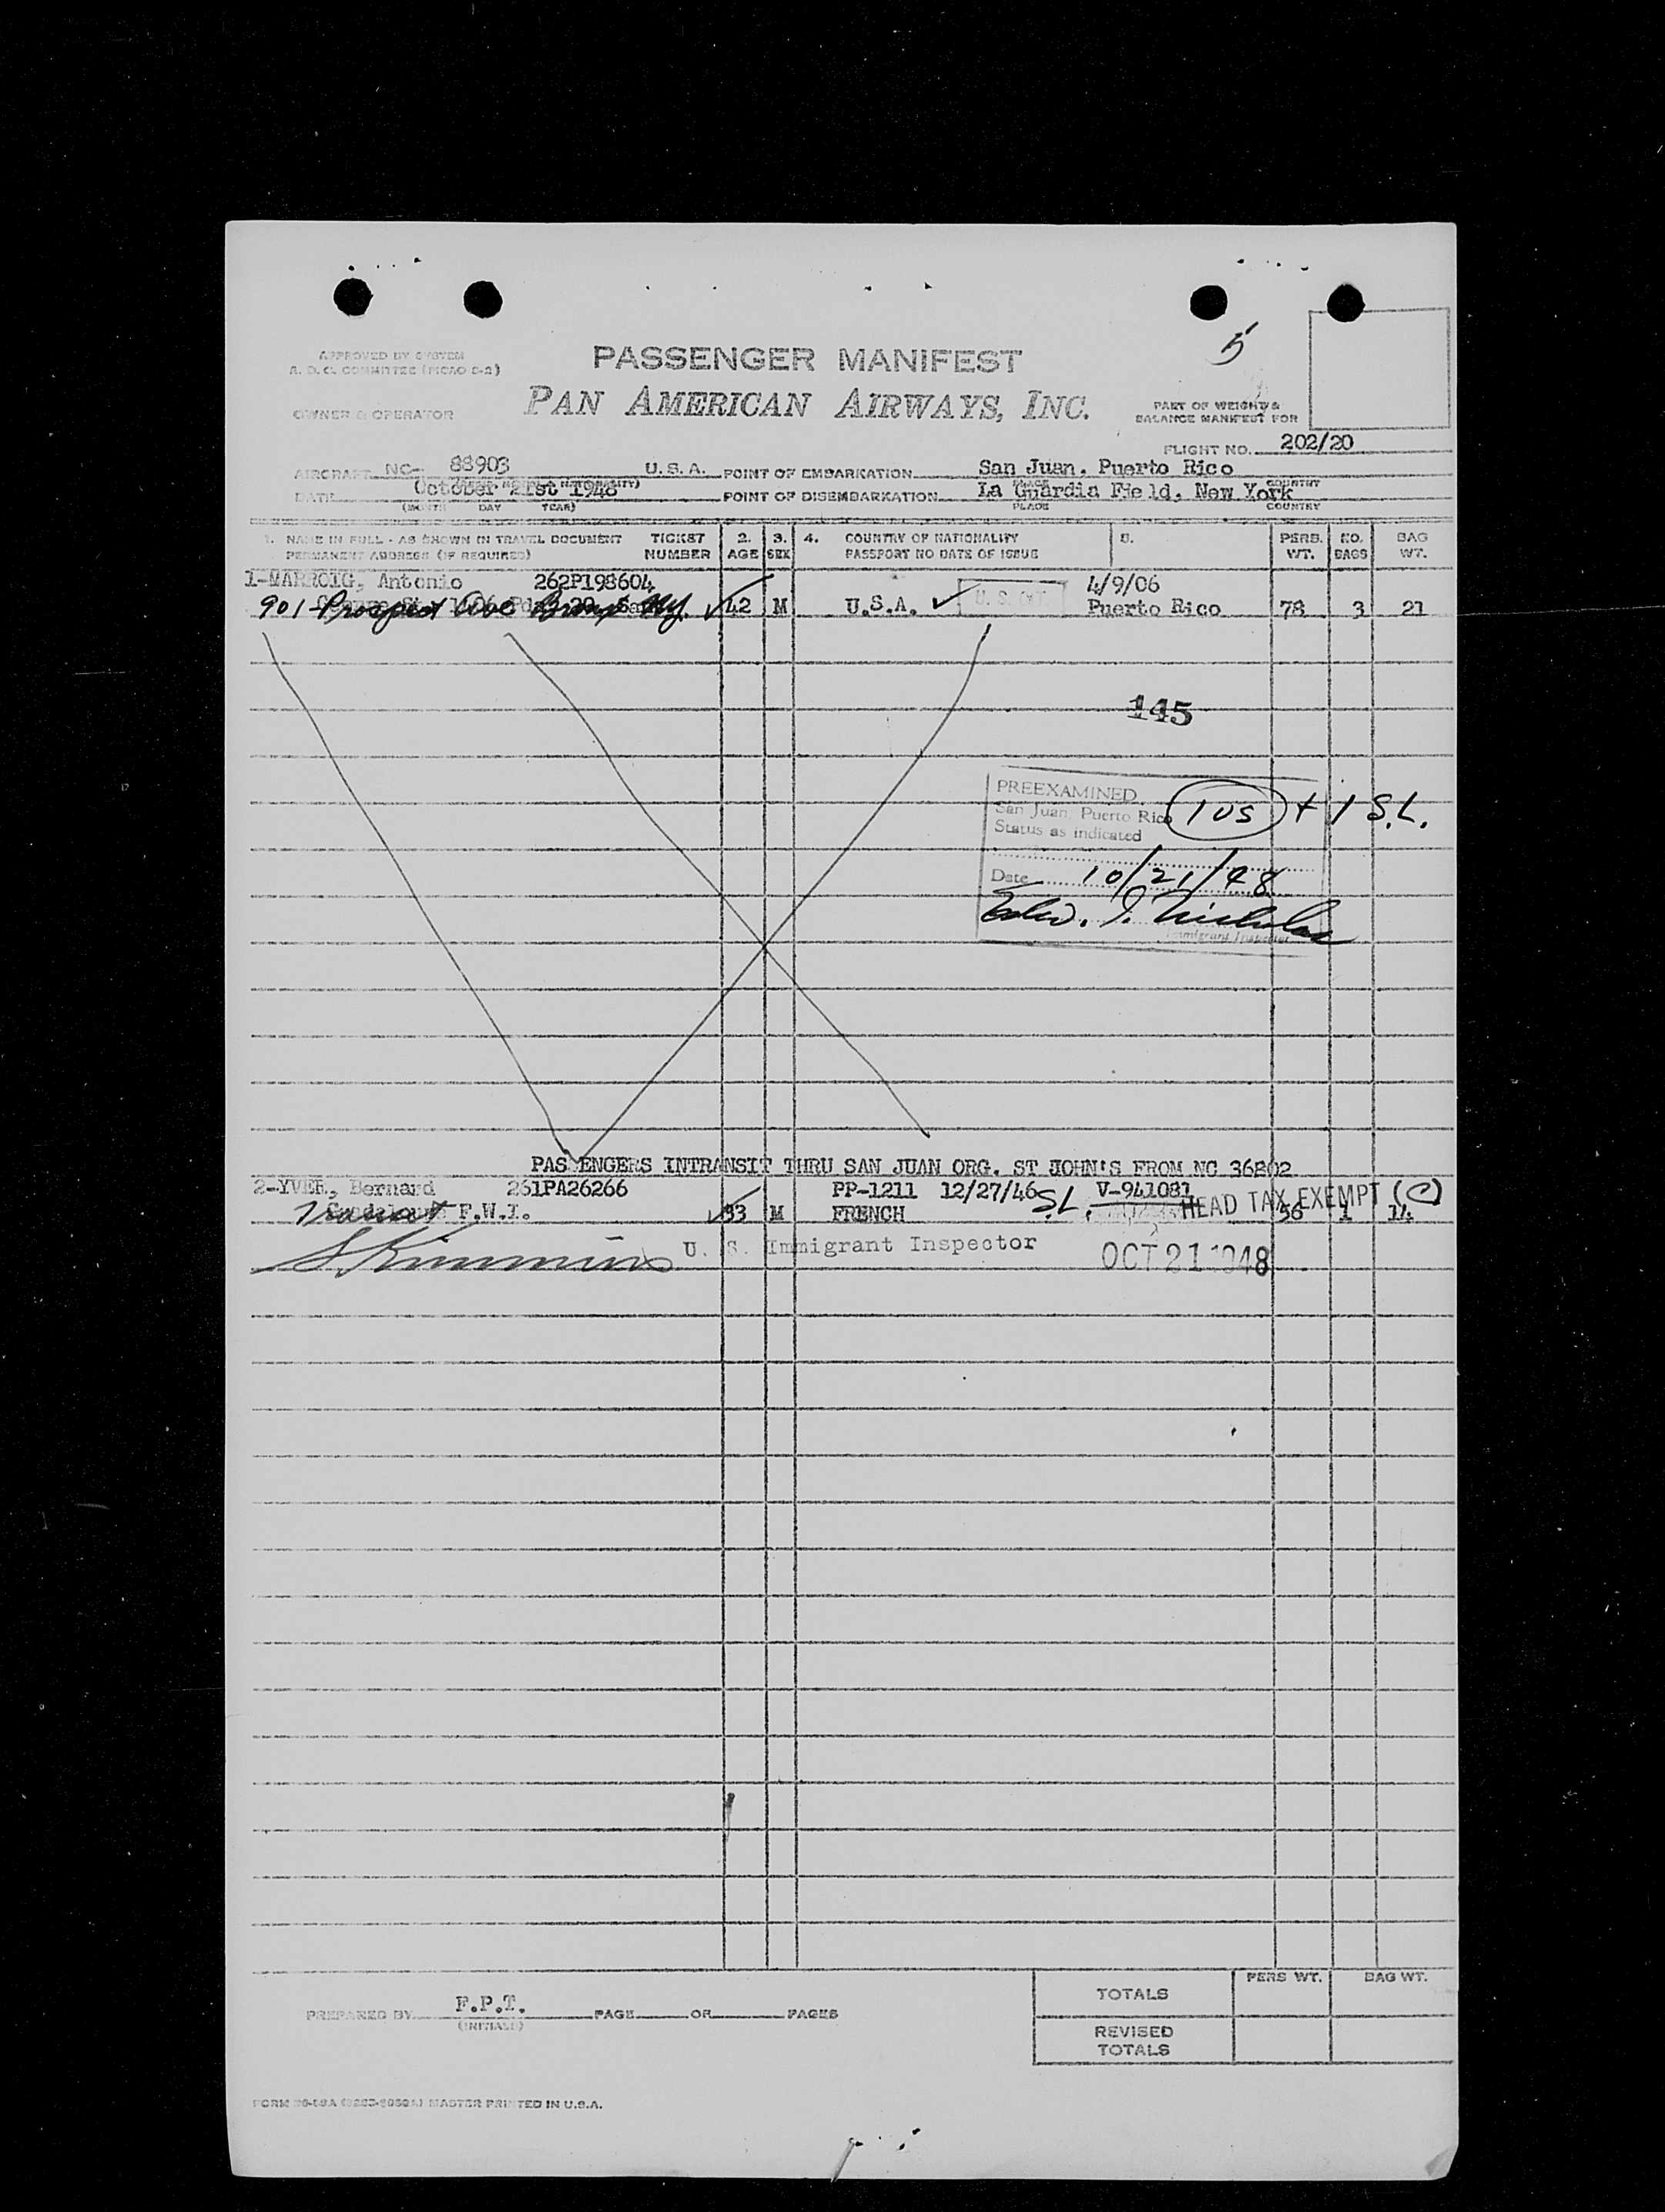 5
APPROVED BY SYSTEM
PASSENGER MANIFEST
PAN AMERICAN AIRWAYS, INC.
OWNER & OPERATOR
PART OF WEIGHT &
BALANCE MANIFEST FOR
FLIGHT NO. 202/20
AIRCRAFT NC- 88903 U.S.A. POINT OF EMBARKATION San Juan, Puerto Rico
DATE October 21st 1948 POINT OF DISEMBARKATION La Guardia Field, New York
(MONTH DAY YEAR) PLACE COUNTRY
1. NAME IN FULL - AS SHOWN IN TRAVEL DOCUMENT TICKET 2. 3. 4. COUNTRY OF NATIONALITY 5. PERS. NO. BAG
PERMANENT ADDRESS (IF REQUIRED) NUMBER AGE SEX PASSPORT NO DATE OF ISSUE WT. BAGS WT.
1-MARROIG, Antonio 262P198604 4/9/06
901 Prospect Ave Bronx NY. 42 M U.S.A. U.S. CIT Puerto Rico 78 3 21
145
PREEXAMINED
San Juan, Puerto Rico 1 US + 1 S.L.
Status as indicated
Date 10/21/48
Edw. J. Nicholas
Immigrant Inspector
PASSENGERS INTRANSIT THRU SAN JUAN ORG. ST JOHN'S FROM NC 36802
2-YVER, Bernard 261PA26266 PP-1211 12/27/46 S.L. V-941081 HEAD TAX EXEMPT (C)
Transit F.W.I. 33 M FRENCH 56 1 14
S. Kimmins U. S. Immigrant Inspector OCT 21 1948
PERS WT. BAG WT.
TOTALS
PREPARED BY F.P.T. PAGE OR PAGES
(INITIALS)
REVISED
TOTALS
MASTER PRINTED IN U.S.A.